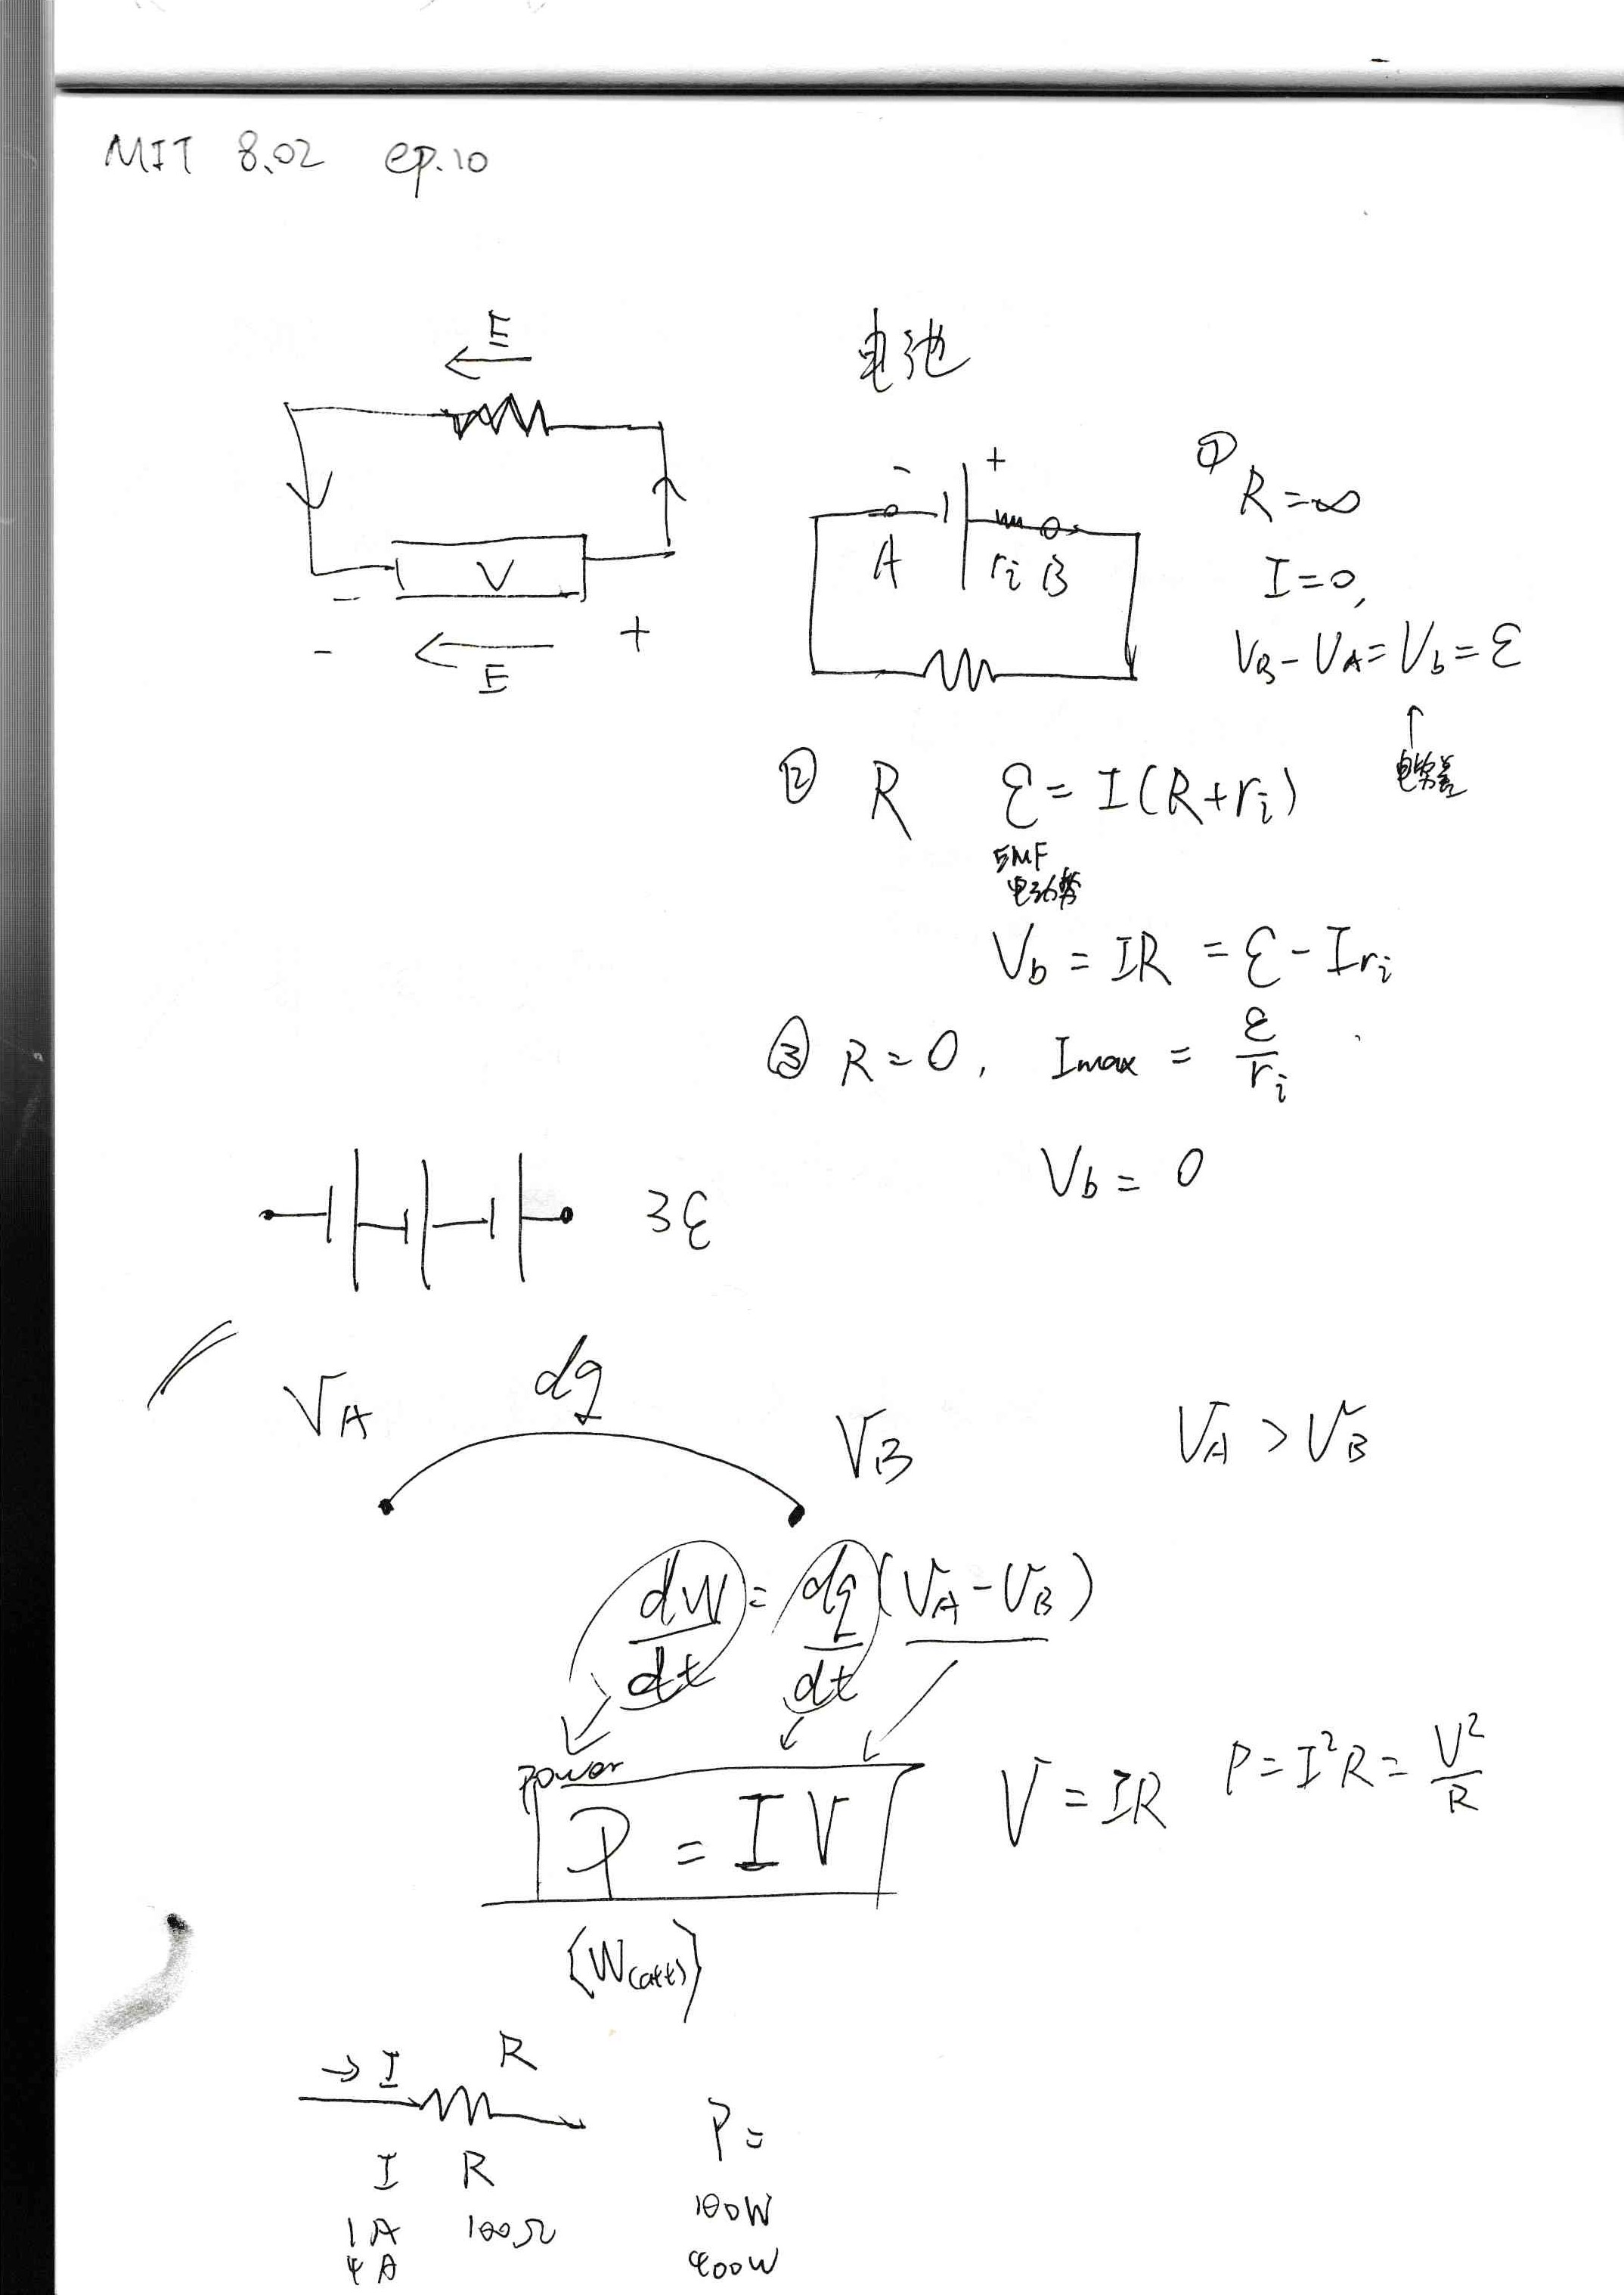 MIT 8.02 ep.10
E
V
-
- +
E
电池
- +
A ri B
① R=∞
I=0,
VB-VA=Vb=ε
↑
电势差
② R ε=I(R+ri)
EMF
电动势
Vb=IR=ε-Iri
③ R=0, Imax=ε/ri
Vb=0
3ε
VA dq VB VA>VB
dW/dt=dq/dt(VA-VB)
power
P=IV V=IR P=I²R=V²/R
(W(att))
→I R
I R P=
1A 100Ω 100W
4A 400W